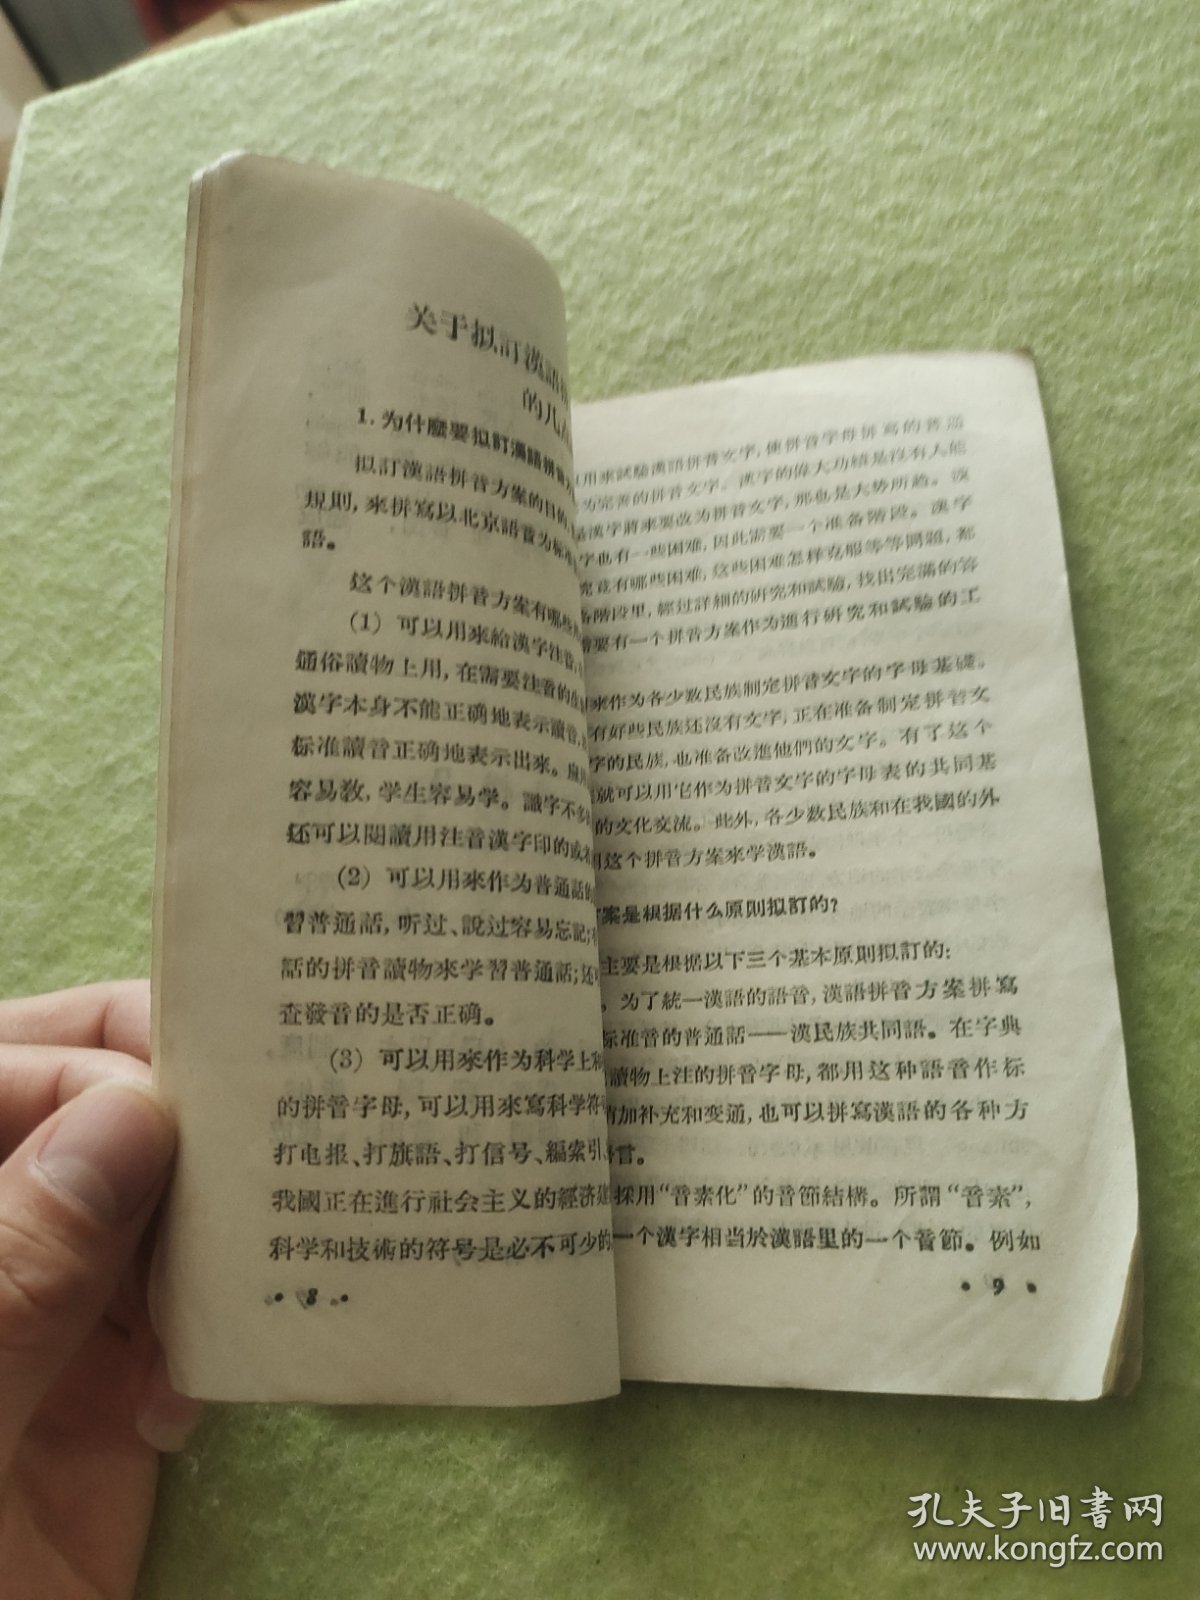 关于拟訂漢語
的几
1.为什麼要拟訂漢語拼音
拟訂漢語拼音方案的目的,
規則,來拼寫以北京語音为标准
語。
这个漢語拼音方案有哪些
(1) 可以用來給漢字注音,
通俗讀物上用,在需要注音的
漢字本身不能正确地表示讀音,
标准讀音正确地表示出來。
容易教,学生容易学。識字不多
还可以閱讀用注音漢字印的或
(2) 可以用來作为普通話的
習普通話,听过、說过容易忘記;
話的拼音讀物來学習普通話;还
查發音的是否正确。
(3) 可以用來作为科学上和
的拼音字母,可以用來寫科学符
打电报、打旗語、打信号、編索引、
我國正在進行社会主义的經济建
科学和技術的符号是必不可少的
• 8 •
用來試驗漢語拼音文字,使拼音字母拼寫的普通
为完善的拼音文字。漢字的偉大功績是沒有人能
是漢字將來要改为拼音文字,那也是大势所趋。漢
字也有一些困难,因此需要一个准备階段。漢字
究竟有哪些困难,这些困难怎样克服等等問題,都
备階段里,經过詳細的研究和試驗,找出完滿的答
需要有一个拼音方案作为進行研究和試驗的工
來作为各少数民族制定拼音文字的字母基礎。
有好些民族还沒有文字,正在准备制定拼音文
字的民族,也准备改進他們的文字。有了这个
就可以用它作为拼音文字的字母表的共同基
的文化交流。此外,各少数民族和在我國的外
用这个拼音方案來学漢語。
案是根据什么原則拟訂的?
主要是根据以下三个基本原則拟訂的:
为了統一漢語的語音,漢語拼音方案拼寫
标准音的普通話——漢民族共同語。在字典
讀物上注的拼音字母,都用这种語音作标
加补充和变通,也可以拼寫漢語的各种方
言。
採用“音素化”的音節結構。所謂“音素”,
一个漢字相当於漢語里的一个音節。例如
• 9 •
孔夫子旧书网
www.kongfz.com